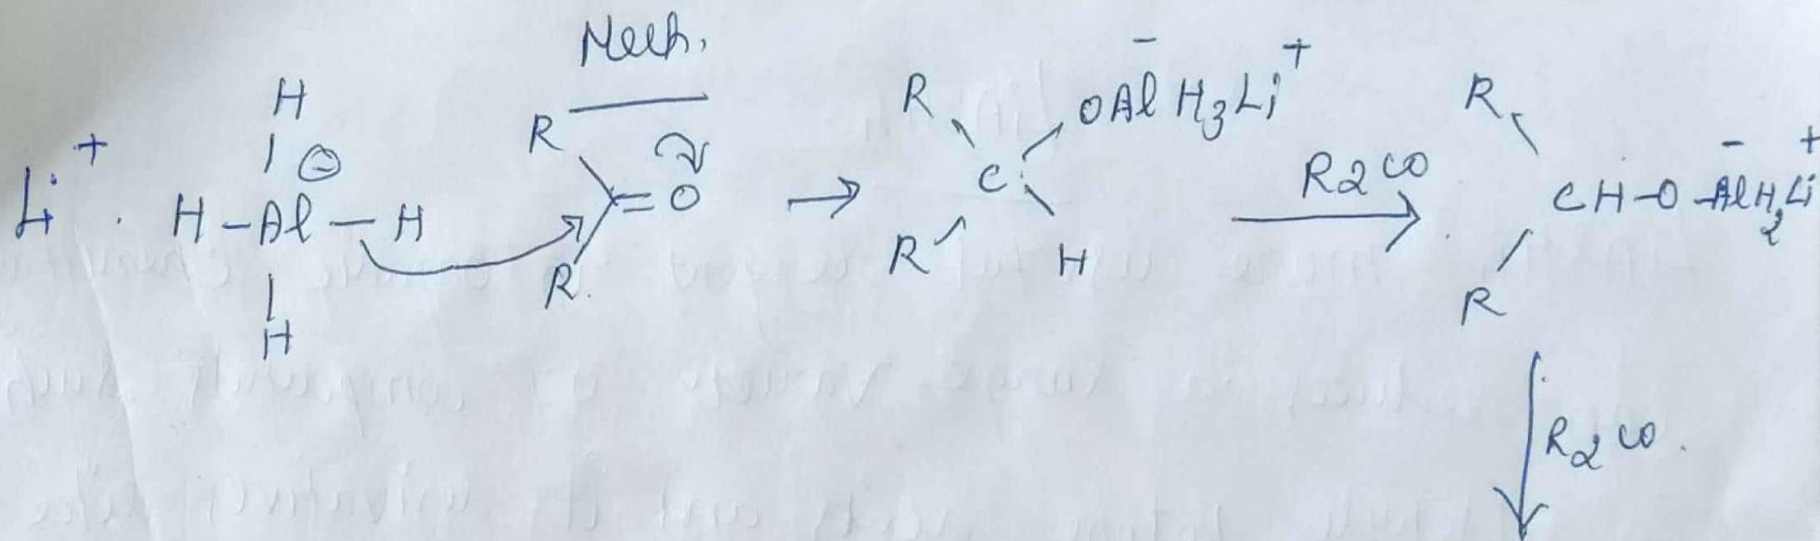 Mech.
Li⁺ . H–Al⊖–H
H
H
R
C=O
R
→
R
R
C
OAl⁻H₃Li⁺
H
R₂CO →
R
R
CH–O–Al⁻H₂Li⁺
R₂CO.